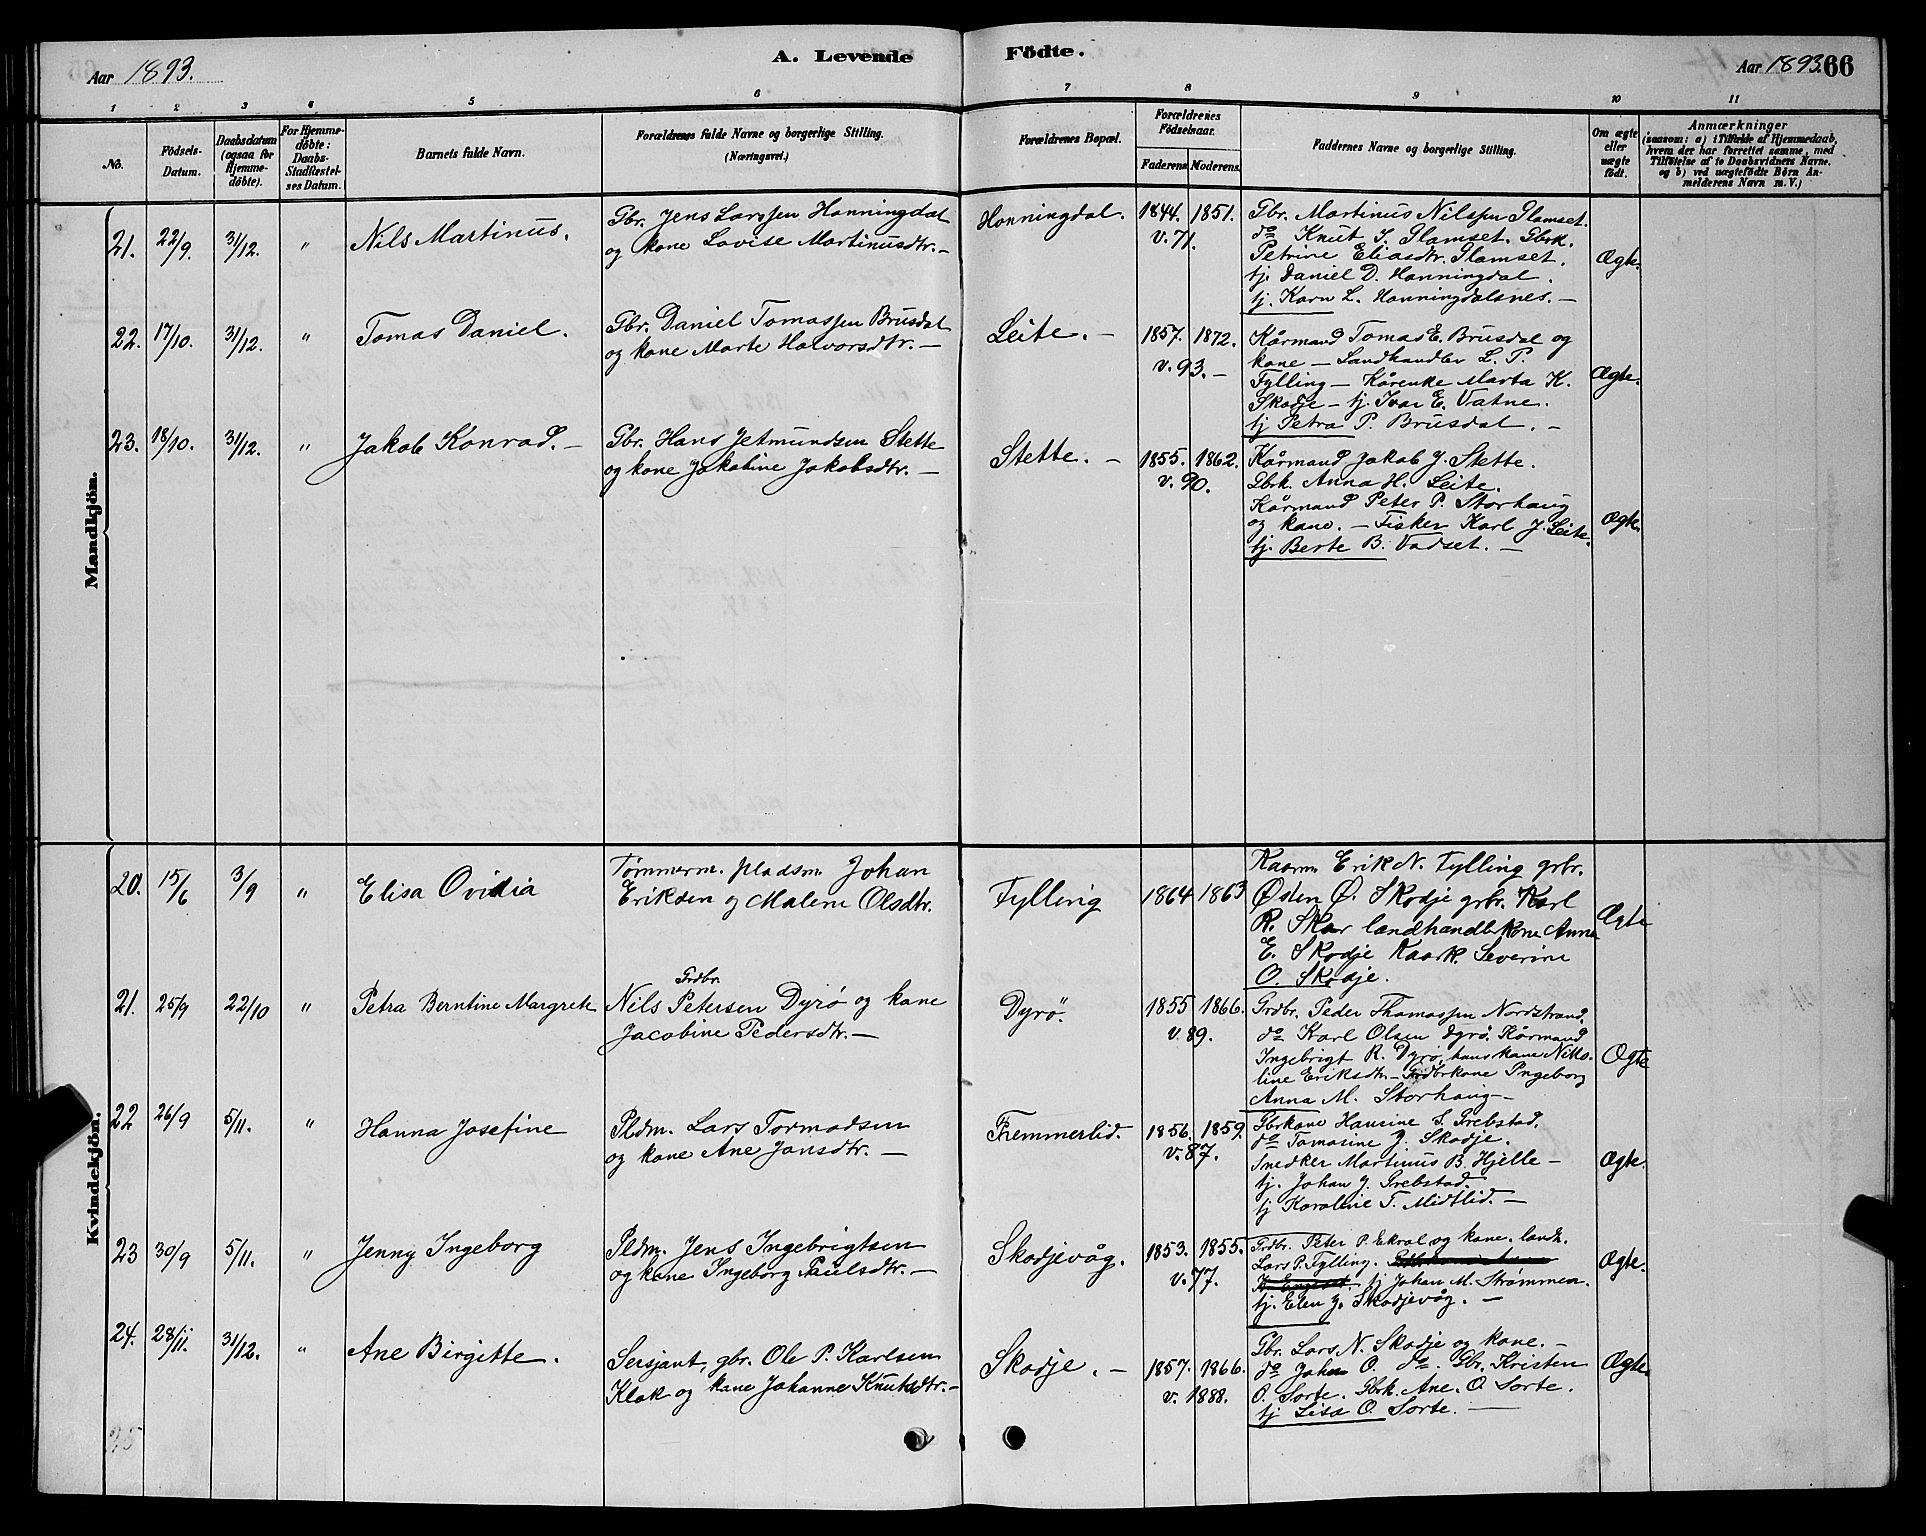 Aar 1893.
A. Levende
Födte.
Aar 1893.
66
1
2
3
4
5
6
7
8
9
10
11
No.
Födsels-
Datum.
Daabsdatum
(ogsaa for
Hjemme-
döbte).
For Hjemme-
döbte:
Daabs-
Stadfæstel-
ses Datum.
Barnets fulde Navn.
Forældrenes fulde Navne og borgerlige Stilling.
(Næringsvei.)
Forældrenes Bopæl.
Forældrenes
Födselsaar.
Faderens
Moderens.
Faddernes Navne og borgerlige Stilling.
Om ægte
eller
uægte
født.
Anmærkninger
(saasom: a) i Tilfælde af Hjemmedaab,
hvem der har forrettet samme, med
Tilföielse af to Daabsvidners Navne.
og b) ved uægtefödte Börn An-
melderens Navn m. V.)
Mandkjön.
21. 22/9 31/12. " Nils Martinus.
Gbr. Jens Larssen Honningdal
og kone Lovise Martinusdtr. —
Honningdal.
1844. 1851.
v. 71.
Gbr. Martinus Nilssen Glamset.
do Knut J. Glamset. Gbrk.
Petrine Eliasdtr. Glamset.
tj. Daniel D. Honningdal.
tj. Karn L. Honningdalsnes. —
Ægte.
22. 17/10. 31/12. " Tomas Daniel.
Gbr. Daniel Tomassen Brusdal
og kone Marte Halvorsdtr. —
Leite. —
1857. 1872.
v. 93. —
Kårmand Tomas E. Brusdal og
kone — Landhandler L. P.
Fylling — Kårenke Marta K.
Skodje — tj. Ivar E. Vatne.
tj Petra P. Brusdal. —
Ægte.
23. 18/10. 31/12. " Jakob Konrad. —
Gbr. Hans Jetmundsen Stette
og kone Jakobine Jakobsdtr. —
Stette. —
1855. 1862.
v. 90.
Kårmand Jakob J. Stette.
Gbrk. Anna H. Leite.
Kårmand Peter P. Storhaug
og kone. — Fisker Karl J. Leite.
tj. Berte B. Vadset. —
Ægte.
Kvindekjön.
20. 15/6 3/9 " Elisa Ovidia
Tømmerm. pladsm. Johan
Eriksen og Malene Olsdtr.
Fylling
1864 1863
Kaarm Erik N. Fylling grbr.
Østen Ø. Skodje grbr. Karl
R. Skar landhandlrkone Anne
E. Skodje Kaark. Severine
O. Skodje.
Ægte
21. 25/9 22/10 " Petra Berntine Margrete
Grdbr.
Nils Petersen Dyrö og kone
Jacobine Pedersdtr. —
Dyrö.
1855 1866.
v. 89.
Grdbr. Peder Thomassen Nordstrand.
do Karl Olsen Dyrö. Kårmand
Ingebrigt R. Dyrö, hans kone Niko-
line Eriksdtr — Grdbrkone Ingeborg
Anna M. Storhaug —
Ægte
22 26/9 5/11. " Hanna Josefine
Pldm. Lars Tormodsen
og kone Ane Jonsdtr. —
Fremmerlid.
1856. 1859.
v. 87.
Gbrkone Hansine S. Grebstad.
do Tomasine J. Skodje.
Snedker Martinus B. Hjelle —
tj. Johan J. Grebstad.
tj Karoline T. Midtlid. —
Ægte.
23 30/9 5/11. " Jenny Ingeborg
Pldm. Jens Ingebrigtsen
og kone Ingeborg Paulsdtr. —
Skodjevåg.
1853. 1855.
v. 77.
Grdbr. Peter P. Ekrol og kone. landh.
Lars P. Fylling.
tj Johan M. Strømmen.
tj. Elen J. Skodjevåg. —
Ægte.
24. 28/11. 31/12. " Ane Birgitte.
Sersjant, gbr. Ole P. Karlsen
Klok og kone Johanne Knutsdtr. —
Skodje. —
1857. 1866.
v. 1888.
Gbr. Lars N. Skodje og kone. —
do Johan O. do. Gbr. Kristen
O. Sorte. Gbrk. Ane. O Sorte.
tj Lisa O. Sorte. —
Ægte
25